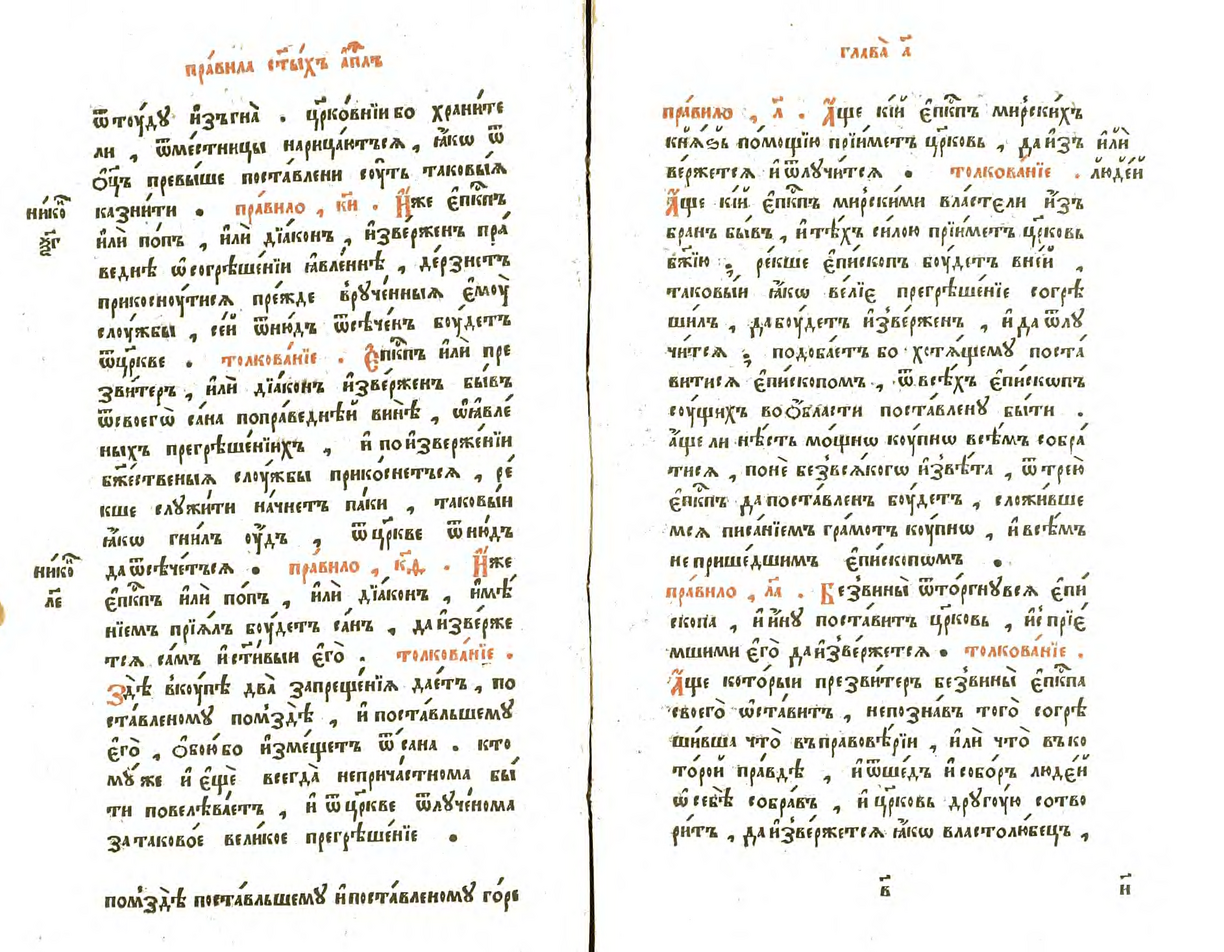 пра́вила ст҃ы́хъ а҆пⷭ҇лъ
ѿтоу́дꙋ и҆зъгна̀ . цр҃ко́внїи бо храни́те
ли , ѿме́стницы нарица́ютъся , ꙗ҆́кѡ ѿ
ѻ҆ц҃ъ превы́ше поста́влени соу́ть таковы́ѧ
казни́ти . пра́вило , к҃и . И҆́же є҆пⷭ҇кпъ
нико̑
ѯ҃г
и҆лѝ по́пъ , и҆лѝ дїа́конъ , и҆зве́рженъ пра́
веднѣ ѡ҆согрѣше́нїи ꙗ҆вле́ннѣ , де́рзнетъ
прикосноу́тисѧ пре́жде врꙋче́нныѧ є҆моу̀
слоу́жбы , се́й ѿню́дъ ѿсѣ́ченъ боу́детъ
ѿцр҃кве . толкова́нїе . Є҆пⷭ҇кпъ и҆лѝ пре
зви́теръ , и҆лѝ дїа́конъ и҆зве́рженъ бы́въ
ѿсвоегѡ̀ са́на попра́веднѣй винѣ̀ , ѡ҆ꙗ҆вле́
ныхъ прегрѣше́нїихъ , и҆ поизверже́нїи
бж҃е́ственыѧ слоу́жбы прикосне́тьсѧ , ре́
кше слꙋжи́ти на́чнетъ па́ки , таковы́и
ꙗ҆́кѡ гни́лъ оу҆́дъ , ѿцр҃кве ѿню́дъ
даѿсѣче́тъсѧ . пра́вило , к҃ѳ . И҆́же
нико̑
л҃е
є҆пⷭ҇кпъ и҆лѝ по́пъ , и҆лѝ дїа́конъ , и҆мѣ́
нїемъ прїѧ́лъ боу́детъ са́нъ , даи҆зве́рже
тсѧ са́мъ и҆ ст҃и́выи є҆го̀ . толкова́нїе .
Здѣ̀ вкоу́пѣ два̀ запреще́нїѧ дае́тъ , по
ста́вленомꙋ помздѣ̀ , и҆ поста́вльшемꙋ
є҆го̀ , ѻ҆бои́ бо и҆зме́щетъ ѿса́на . кто
мꙋ́ же и҆ є҆щѐ всегда̀ неприча́стнома бы́
ти повелѣва́етъ , и҆ ѿцр҃кве ѿлꙋче́нома
затаково́е вели́кое прегрѣше́нїе .
помздѣ̀ поста́вльшемꙋ и҆поста́вленомꙋ го́ре
глава̀ а҃
пра́вило , л҃ . А҆́ще кі́й є҆пⷭ҇кпъ мирски́хъ
кнѧ́ѕь по́мощїю прїи́метъ цр҃ковь , даи҆зъ
и҆лѝ
люде́й
ве́ржетсѧ и҆ ѿлꙋчи́тсѧ . толкова́нїе .
А҆́ще кі́й є҆пⷭ҇кпъ ми́рскими вла́стели и҆́зъ
бранъ бы́въ , и҆ тѣ́хъ си́лою прїи́метъ цр҃ковь
бж҃їю , ре́кше є҆пи́скопъ боу́детъ вне́й ,
таковы́и ꙗ҆́кѡ ве́лїе прегрѣше́нїе согрѣ
ши́лъ , дабоу́детъ и҆зве́рженъ , и҆ да ѿлꙋ
чи́тсѧ , подоба́етъ бо хотѧ́щемꙋ поста́
витисѧ є҆пи́скопомъ , ѿвсѣ́хъ є҆пи́скѡпъ
соу́щихъ воѻ҆́бласти поста́вленꙋ бы́ти .
а҆́ще ли нѣ́сть мо́щнѡ коу́пнѡ всѣ́мъ собра́
тисѧ , понѐ безвсѧ́когѡ и҆звѣ́та , ѿтрею̀
є҆пⷭ҇кпъ да поста́вленъ боу́детъ , сложи́вше
мсѧ писа́нїемъ гра́мотъ коу́пнѡ , и҆ всѣ́мъ
не прише́дшимъ є҆пи́скопѡмъ .
пра́вило , л҃а . Безвины̀ ѿто́ргнꙋвсѧ є҆пи́
скопа , и҆ и҆́нꙋ поста́витъ цр҃ковь , и҆с прїе́
мшими є҆го̀ даи҆зве́ржетсѧ . толкова́нїе .
А҆́ще кото́рыи презви́теръ безвины̀ є҆пⷭ҇кпа
своего̀ ѡ҆ста́витъ , непозна́въ того̀ согрѣ
ши́вша что̀ въправовѣ́рїи , и҆лѝ что̀ въко
то́рой пра́вдѣ , и҆ ѿше́дъ и҆ собо́ръ люде́й
ѡ҆себѣ̀ собра́въ , и҆ цр҃ковь дрꙋгоу́ю сотво
ри́тъ , даи҆зве́ржетсѧ ꙗ҆́кѡ властолю́бецъ ,
в҃
и҃